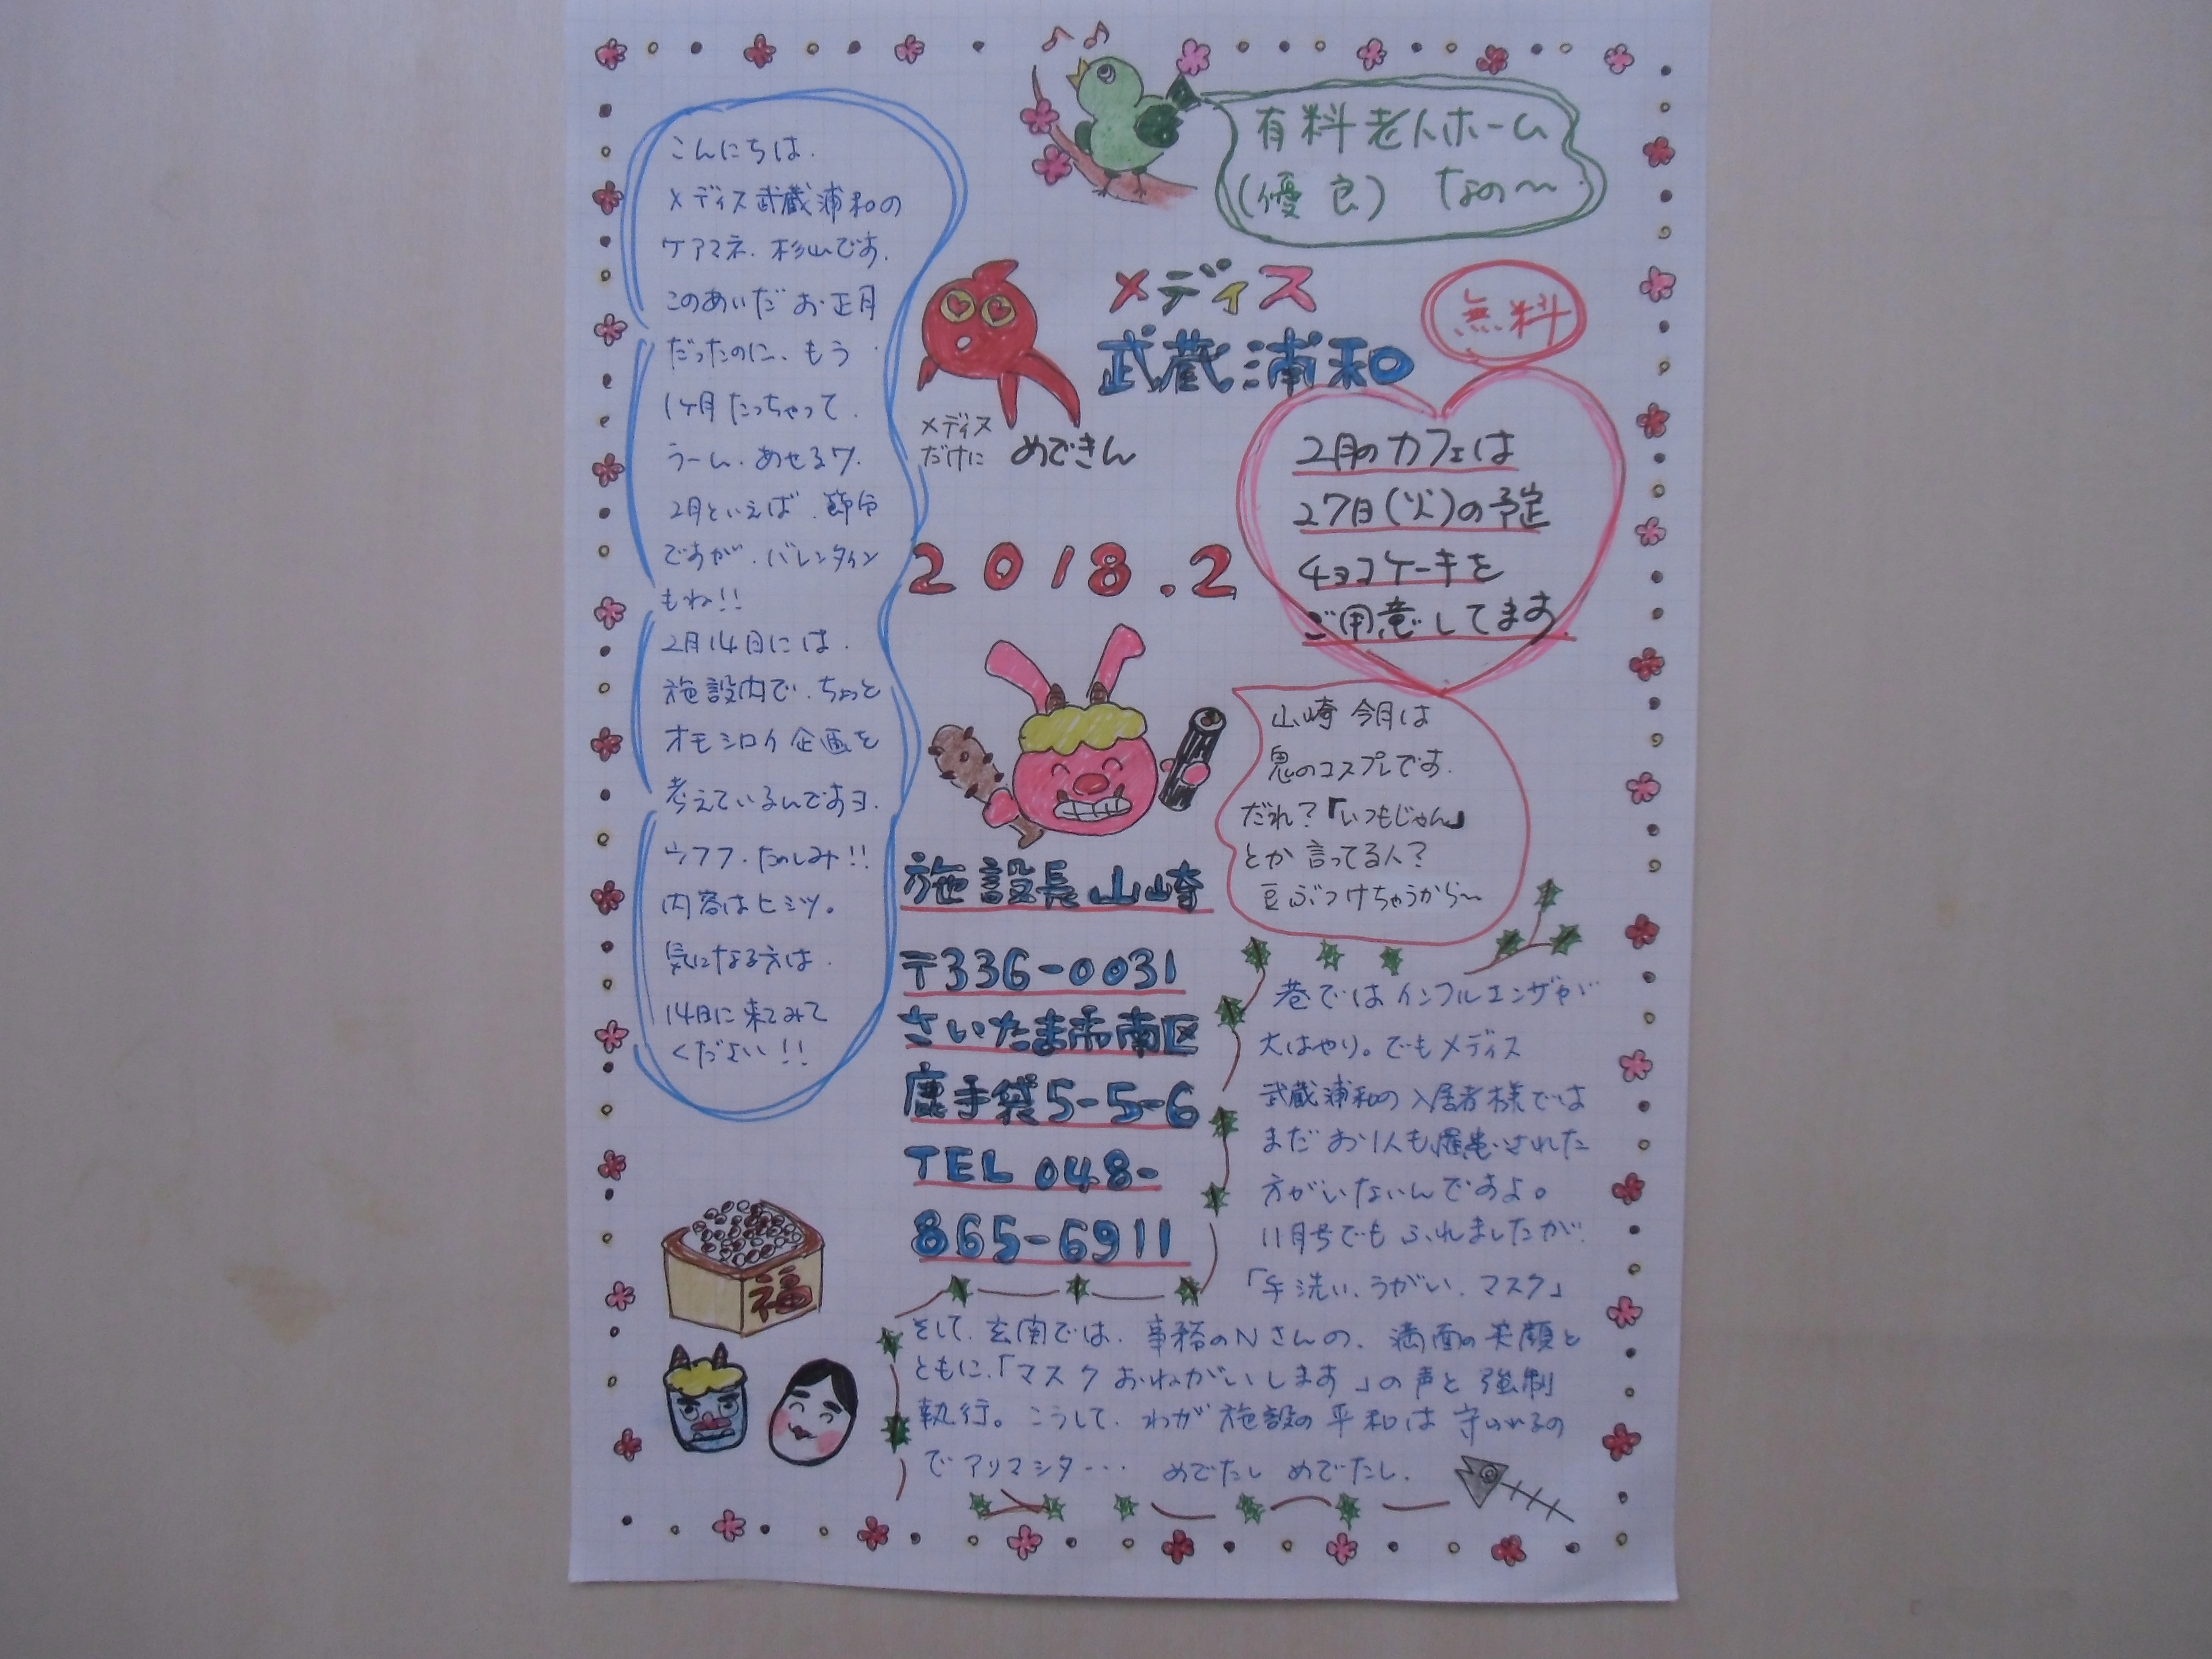 有料老人ホーム
(優良) なの〜
こんにちは.
メディス武蔵浦和の
ケアマネ.杉山です.
このあいだ お正月
だったのに、もう
1ヶ月たっちゃって.
うーん.あせるワ.
2月といえば.節分
ですが.バレンタイン
もね!!
2月14日には.
施設内で.ちょっと
オモシロイ企画を
考えているんですヨ.
ウフフ・たのしみ!!
内容はヒミツ。
気になる方は.
14日に来てみて
ください!!
メディス
武蔵浦和
メディス
だけに めできん
無料
2月のカフェは
27日(火)の予定
チョコケーキを
ご用意してます.
2018.2
山崎 今月は
鬼のコスプレです.
だれ?「いつもじゃん」
とか 言ってる人?
豆ぶつけちゃうから〜
施設長山崎
〒336-0031
さいたま市南区
鹿手袋5-5-6
TEL 048-
865-6911
巷ではインフルエンザが
大はやり。でもメディス
武蔵浦和の入居者様では
まだ お1人も罹患された
方がいないんですよ。
11月号でも ふれましたが.
「手洗い、うがい、マスク」
そして、玄関では.事務のNさんの、満面の笑顔と
ともに.「マスク おねがいします」の声と 強制
執行。こうして、わが施設の平和は 守られるの
で アリマシタ… めでたし めでたし.
福